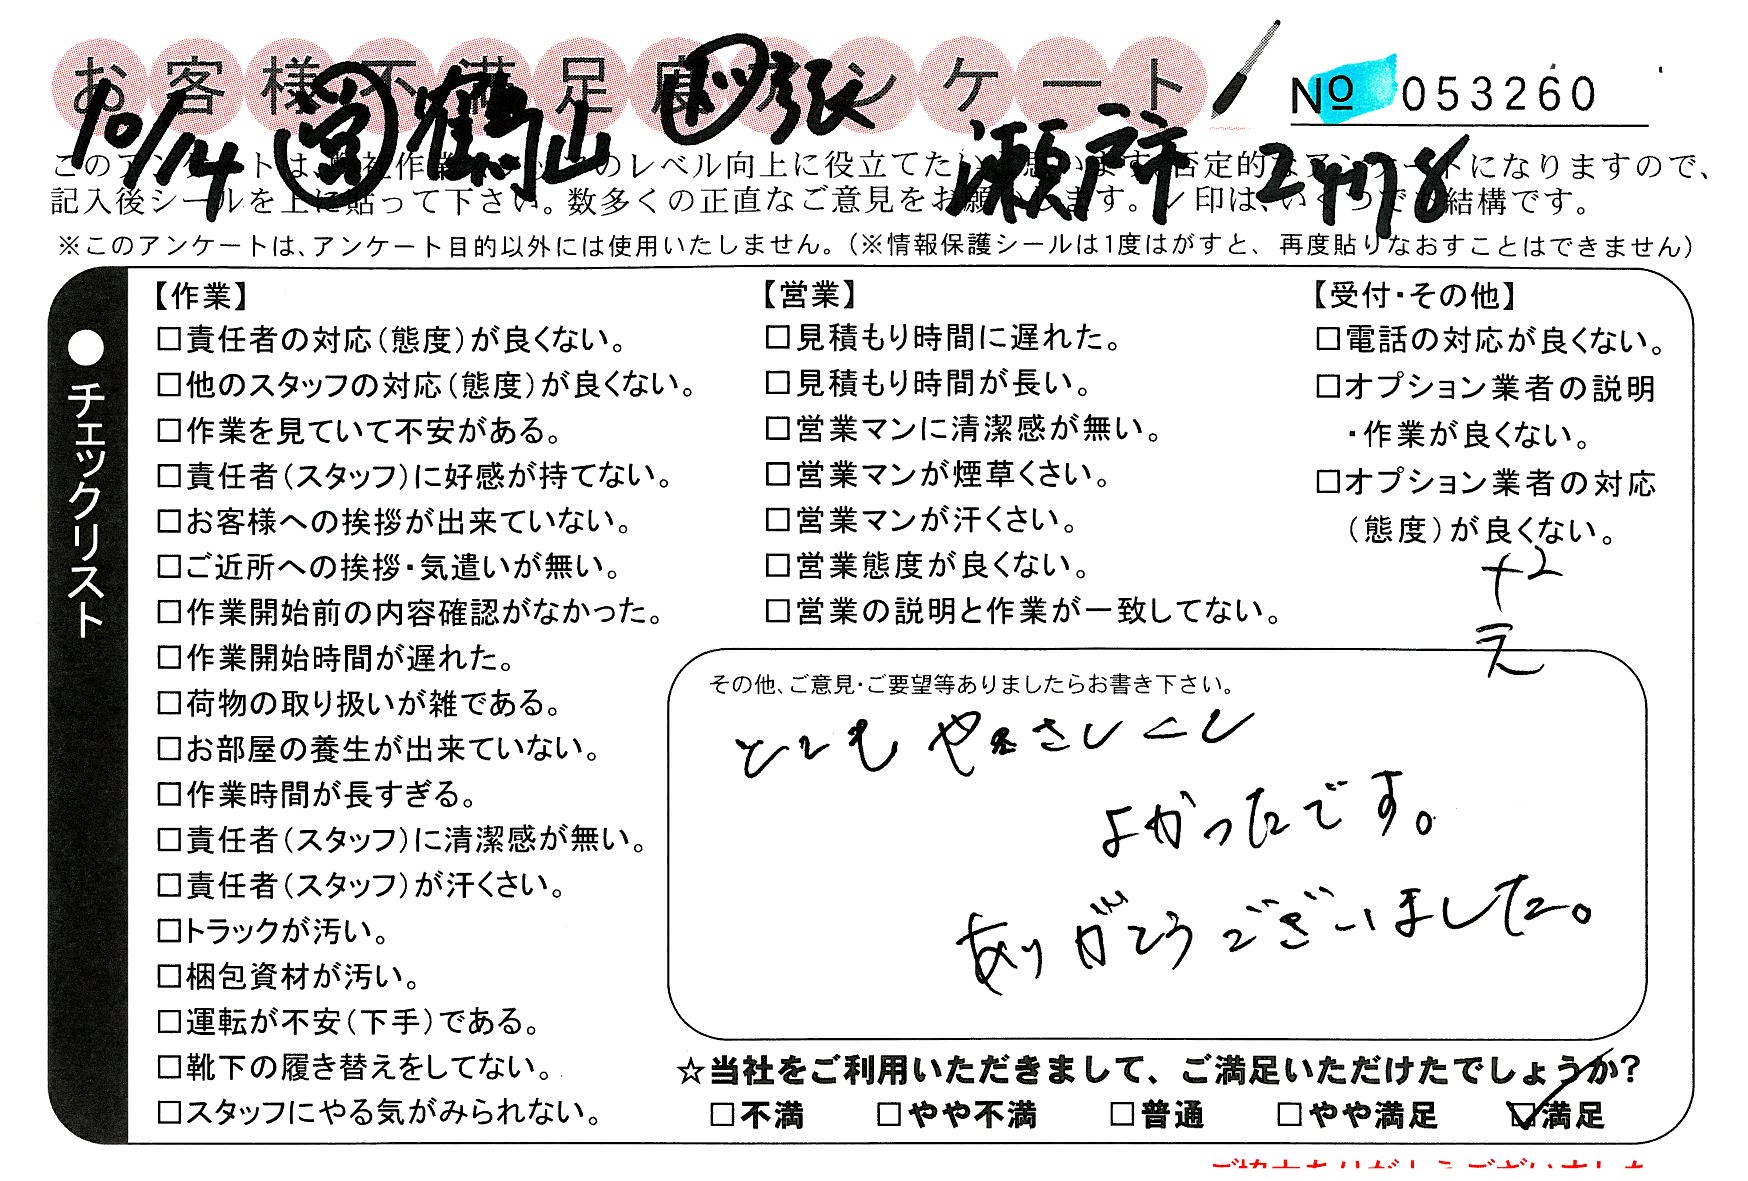 お客様不満足度アンケート
№ 053260
10/14 鶴山 張
瀬
このアンケートは、弊社作業スタッフのレベル向上に役立てたいと思います。否定的なアンケートになりますので、
記入後シールを上に貼って下さい。数多くの正直なご意見をお願いします。✓印は、いくつでも結構です。
※このアンケートは、アンケート目的以外には使用いたしません。（※情報保護シールは1度はがすと、再度貼りなおすことはできません）
●チェックリスト
【作業】
□責任者の対応（態度）が良くない。
□他のスタッフの対応（態度）が良くない。
□作業を見ていて不安がある。
□責任者（スタッフ）に好感が持てない。
□お客様への挨拶が出来ていない。
□ご近所への挨拶・気遣いが無い。
□作業開始前の内容確認がなかった。
□作業開始時間が遅れた。
□荷物の取り扱いが雑である。
□お部屋の養生が出来ていない。
□作業時間が長すぎる。
□責任者（スタッフ）に清潔感が無い。
□責任者（スタッフ）が汗くさい。
□トラックが汚い。
□梱包資材が汚い。
□運転が不安（下手）である。
□靴下の履き替えをしてない。
□スタッフにやる気がみられない。
【営業】
□見積もり時間に遅れた。
□見積もり時間が長い。
□営業マンに清潔感が無い。
□営業マンが煙草くさい。
□営業マンが汗くさい。
□営業態度が良くない。
□営業の説明と作業が一致してない。
【受付・その他】
□電話の対応が良くない。
□オプション業者の説明
・作業が良くない。
□オプション業者の対応
（態度）が良くない。
+2
え
その他、ご意見・ご要望等ありましたらお書き下さい。
とてもやさしくし
よかったです。
ありがとうございました。
☆当社をご利用いただきまして、ご満足いただけたでしょうか？
□不満 □やや不満 □普通 □やや満足 ☑満足
ご協力ありがとうございました